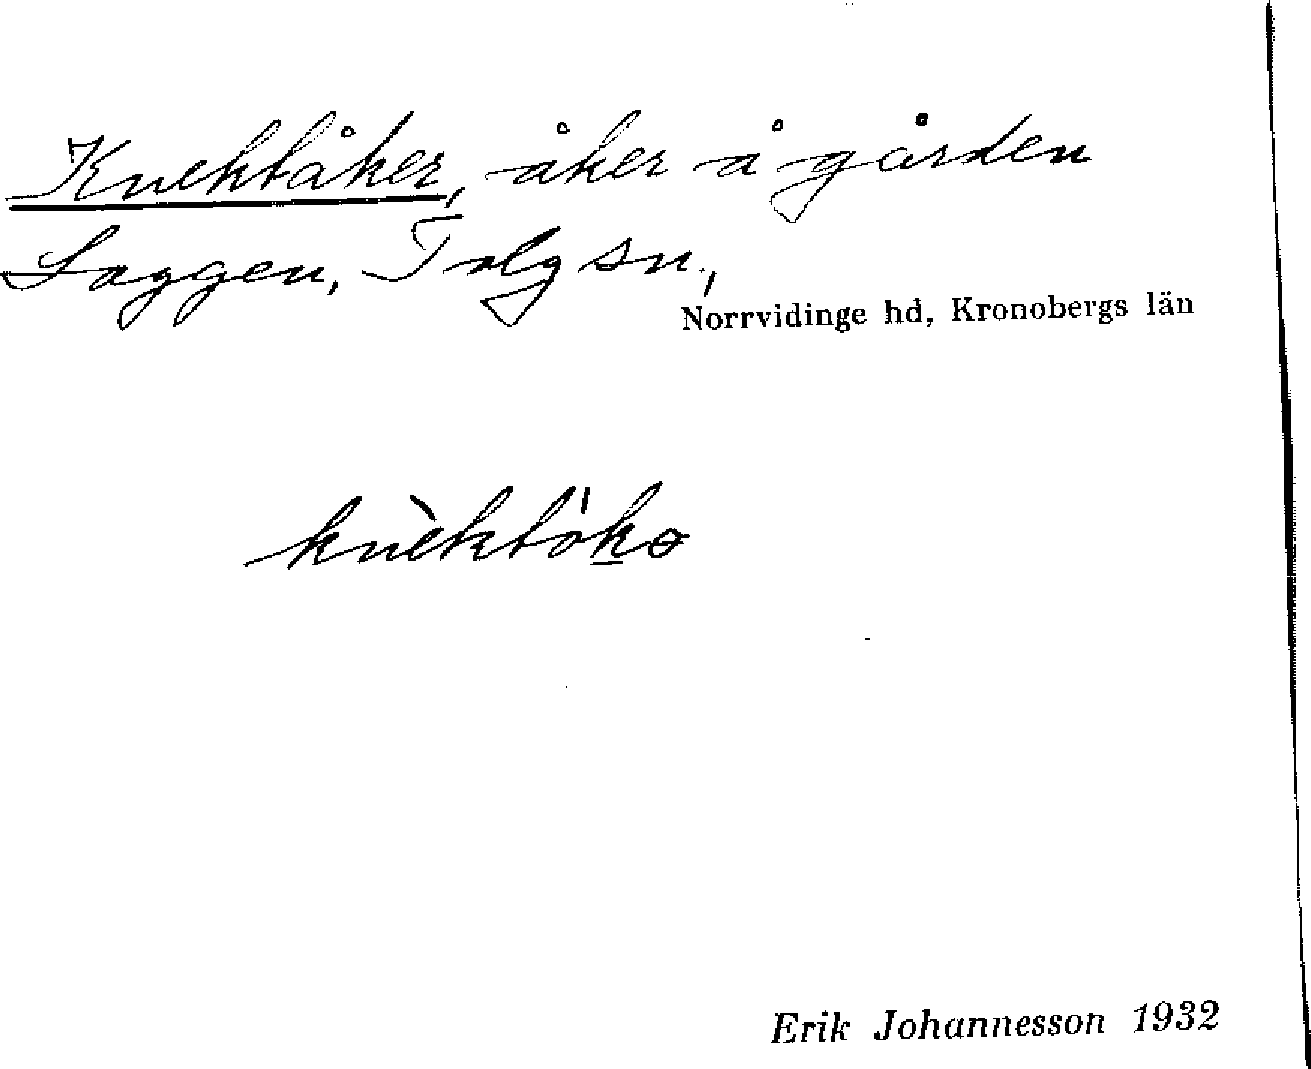 Knektåker, åker å gården
Laggen, Tolg sn,
Norrvidinge hd, Kronobergs län
Erik Johannesson 1932